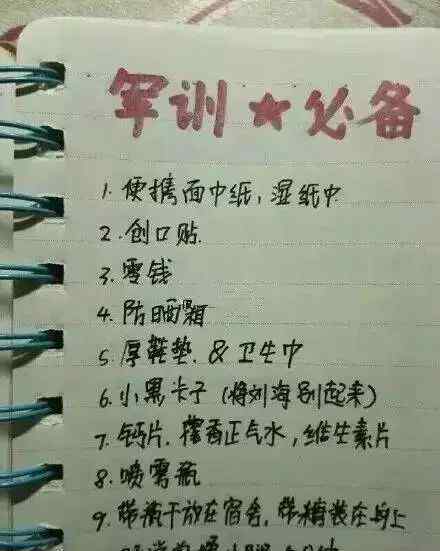 军训★必备
1. 便携面巾纸，湿纸巾
2. 创口贴
3. 零钱
4. 防晒霜
5. 厚鞋垫. & 卫生巾
6. 小黑卡子（将刘海别起来）
7. 钙片. 藿香正气水，维生素片
8. 喷雾瓶
9. 带饼干放在宿舍，带糖装在身上